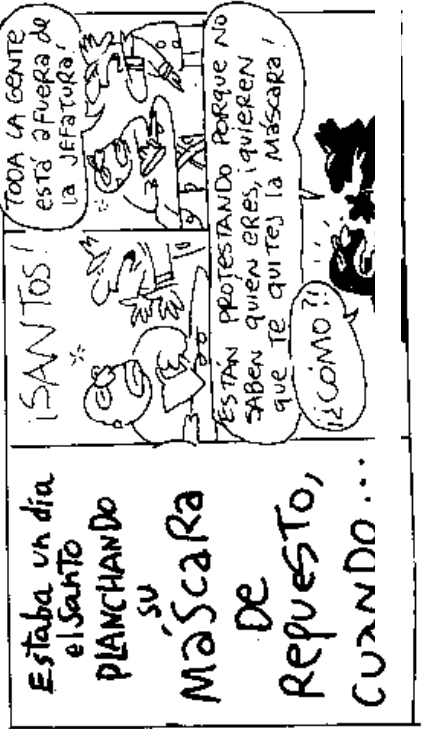 Estaba un día
el Santo
PLANCHANDO
su
MáScaRa
DE
RePUeSTO,
CUANDO...
¡SANTOS!
TODA LA GENTE
está aFueRa de
la JEFaTURa!
ESTÁN PROTESTANDO PORQUE NO
SABEN QUIEN ERES, ¡QUIEREN
que Te quiTes la MáScara!
¡¿CÓMO?!!